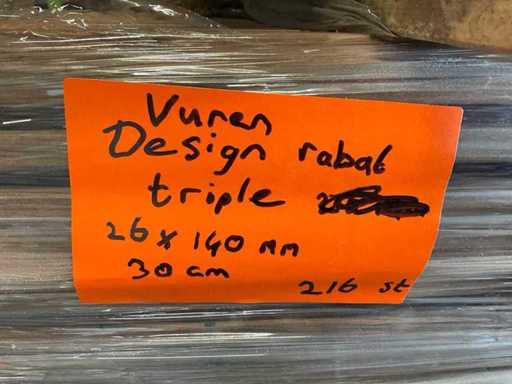 Vuren
Design rabat
triple
26 x 140 mm
30 cm
216 st